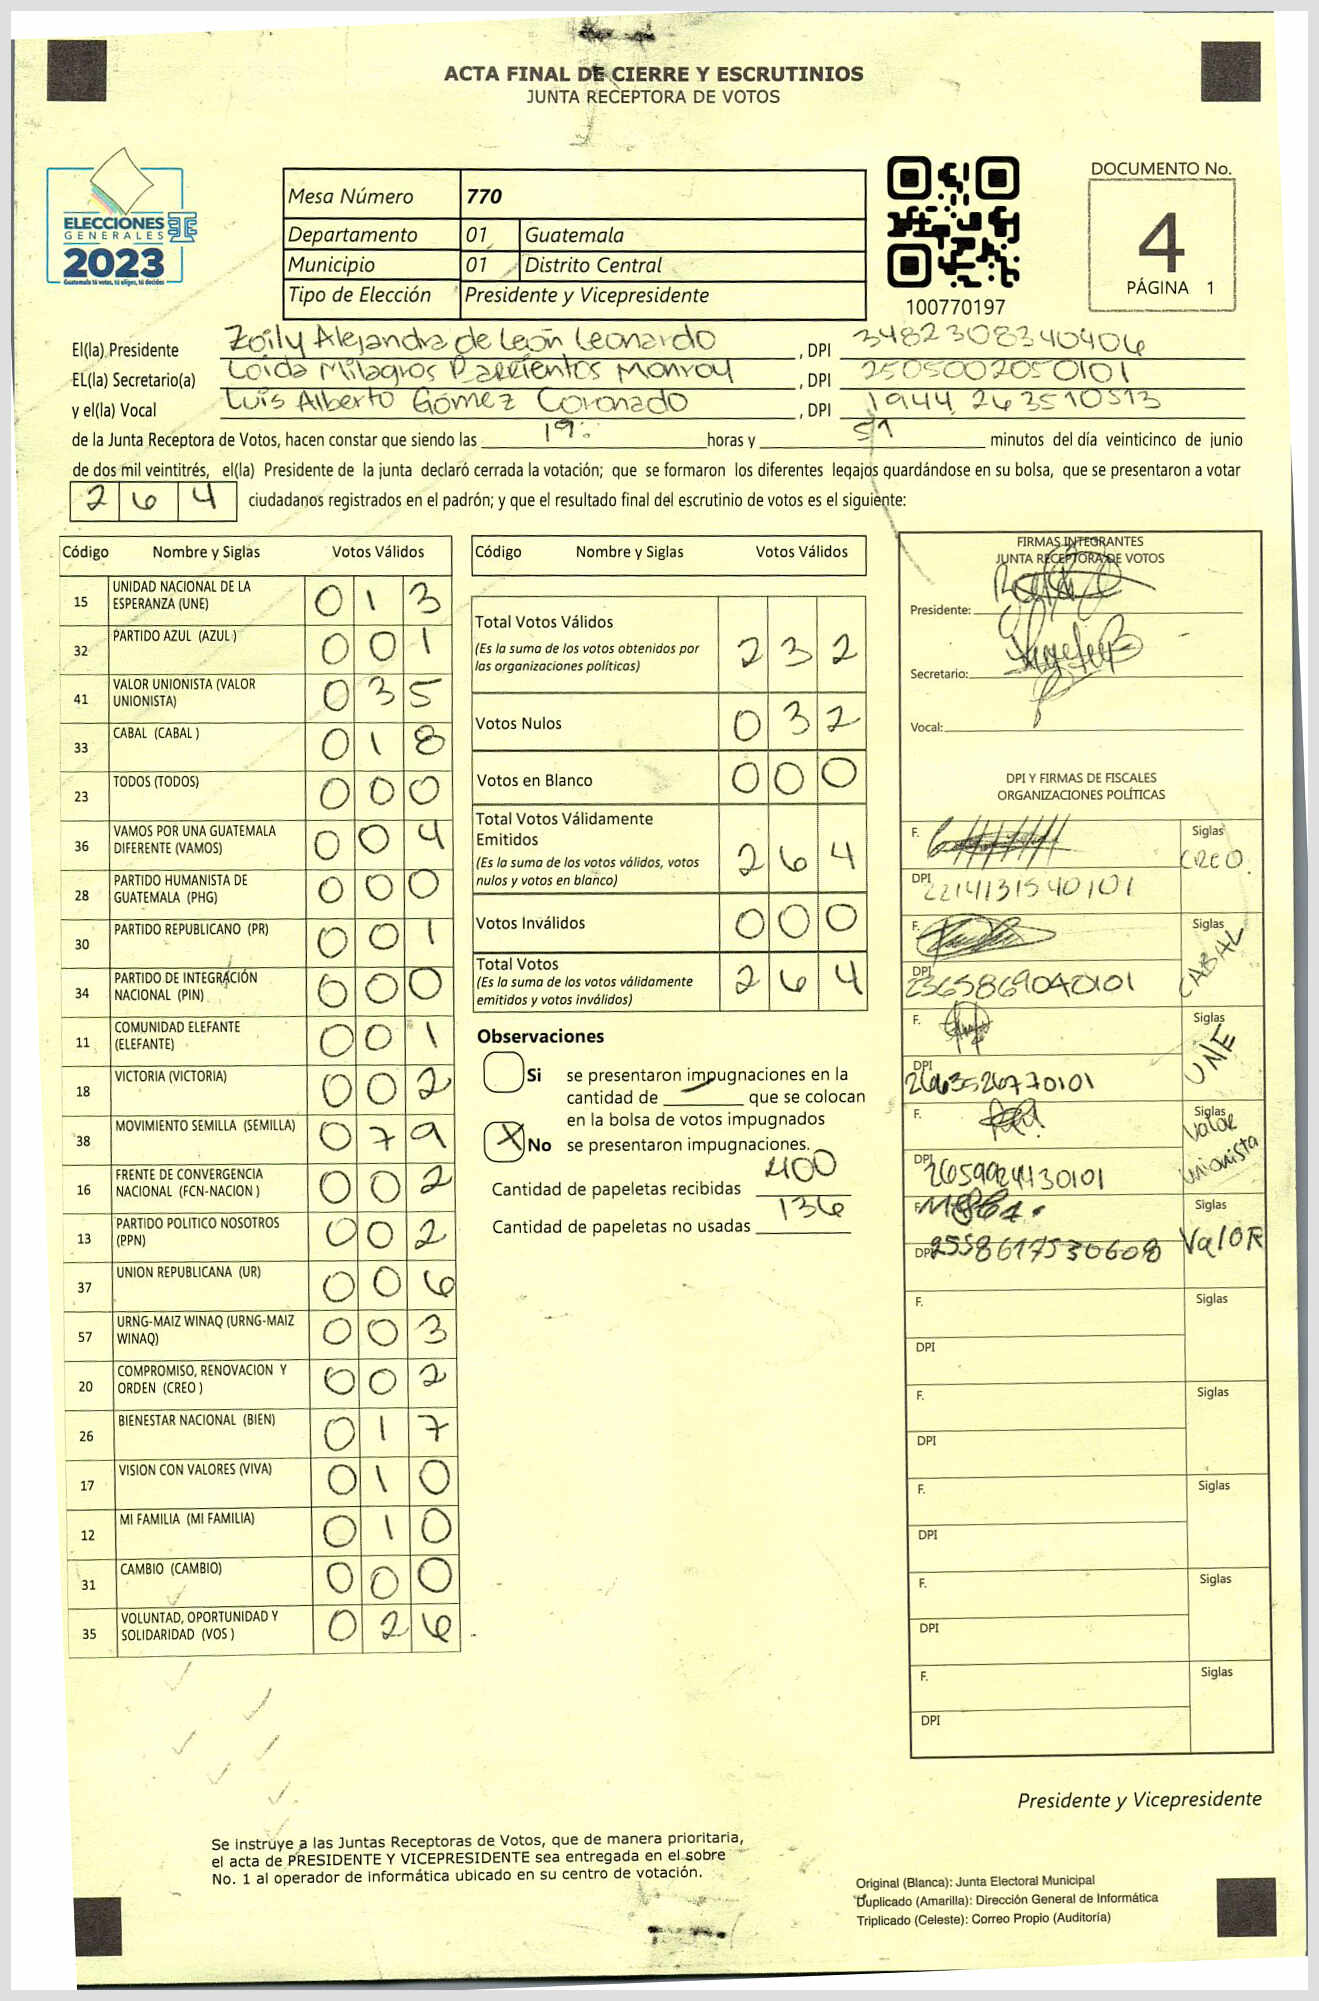 ACTA FINAL DE CIERRE Y ESCRUTINIOS
JUNTA RECEPTORA DE VOTOS
ELECCIONES
GENERALES
2023
Guatemala tú votas, tú eliges, tú decides
Mesa Número 770
Departamento 01 Guatemala
Municipio 01 Distrito Central
Tipo de Elección Presidente y Vicepresidente
100770197
DOCUMENTO No.
4
PÁGINA 1
El(la) Presidente Zoily Alejandra de León Leonardo , DPI 3482308340406
EL(la) Secretario(a) Loida Milagros Barrientos Monroy , DPI 2505002050101
y el(la) Vocal Luis Alberto Gómez Coronado , DPI 1944 263510513
de la Junta Receptora de Votos, hacen constar que siendo las 19: horas y 51 minutos del día veinticinco de junio
de dos mil veintitrés, el(la) Presidente de la junta declaró cerrada la votación; que se formaron los diferentes legajos guardándose en su bolsa, que se presentaron a votar
264 ciudadanos registrados en el padrón; y que el resultado final del escrutinio de votos es el siguiente:
Código Nombre y Siglas Votos Válidos
15 UNIDAD NACIONAL DE LA ESPERANZA (UNE) 013
32 PARTIDO AZUL (AZUL ) 001
41 VALOR UNIONISTA (VALOR UNIONISTA) 035
33 CABAL (CABAL ) 018
23 TODOS (TODOS) 000
36 VAMOS POR UNA GUATEMALA DIFERENTE (VAMOS) 004
28 PARTIDO HUMANISTA DE GUATEMALA (PHG) 000
30 PARTIDO REPUBLICANO (PR) 001
34 PARTIDO DE INTEGRACIÓN NACIONAL (PIN) 000
11 COMUNIDAD ELEFANTE (ELEFANTE) 001
18 VICTORIA (VICTORIA) 002
38 MOVIMIENTO SEMILLA (SEMILLA) 079
16 FRENTE DE CONVERGENCIA NACIONAL (FCN-NACION ) 002
13 PARTIDO POLITICO NOSOTROS (PPN) 002
37 UNION REPUBLICANA (UR) 006
57 URNG-MAIZ WINAQ (URNG-MAIZ WINAQ) 003
20 COMPROMISO, RENOVACION Y ORDEN (CREO ) 002
26 BIENESTAR NACIONAL (BIEN) 017
17 VISION CON VALORES (VIVA) 010
12 MI FAMILIA (MI FAMILIA) 010
31 CAMBIO (CAMBIO) 000
35 VOLUNTAD, OPORTUNIDAD Y SOLIDARIDAD (VOS ) 026
Código Nombre y Siglas Votos Válidos
Total Votos Válidos 232
(Es la suma de los votos obtenidos por
las organizaciones políticas)
Votos Nulos 032
Votos en Blanco 000
Total Votos Válidamente
Emitidos 264
(Es la suma de los votos válidos, votos
nulos y votos en blanco)
Votos Inválidos 000
Total Votos 264
(Es la suma de los votos válidamente
emitidos y votos inválidos)
Observaciones
Si se presentaron impugnaciones en la
cantidad de — que se colocan
en la bolsa de votos impugnados
X No se presentaron impugnaciones.
Cantidad de papeletas recibidas 400
Cantidad de papeletas no usadas 136
FIRMAS INTEGRANTES
JUNTA RECEPTORA DE VOTOS
Presidente:
Secretario:
Vocal:
DPI Y FIRMAS DE FISCALES
ORGANIZACIONES POLÍTICAS
F. Siglas CREO.
DPI 2214131540101
F. Siglas CABAL
DPI 2365869040101
F. Siglas UNE
DPI 2663526770101
F. Siglas Valor Unionista
DPI 2659924130101
F. Siglas ValOR
DPI 2558617530608
F. Siglas
DPI
F. Siglas
DPI
F. Siglas
DPI
F. Siglas
DPI
F. Siglas
DPI
Presidente y Vicepresidente
Se instruye a las Juntas Receptoras de Votos, que de manera prioritaria,
el acta de PRESIDENTE Y VICEPRESIDENTE sea entregada en el sobre
No. 1 al operador de informática ubicado en su centro de votación.
Original (Blanca): Junta Electoral Municipal
Duplicado (Amarilla): Dirección General de Informática
Triplicado (Celeste): Correo Propio (Auditoría)